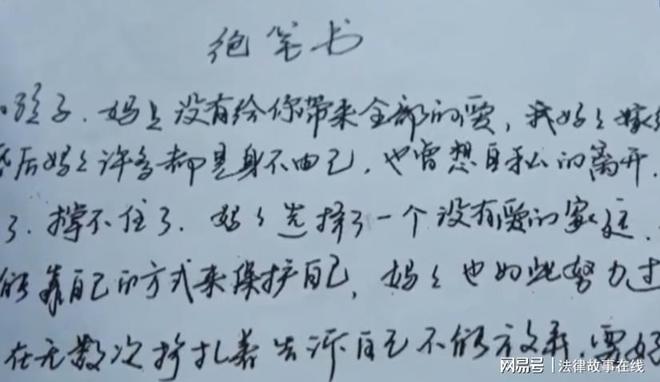 绝笔书
孩子.妈妈没有给你带来全部的爱,我妈妈嫁给
后妈妈许多都是身不由己.也曾想自私的离开.
了.撑不住了.妈妈选择了一个没有爱的家庭.
能靠自己的方式来保护自己,妈妈也如此努力过
在无数次挣扎着告诉自己不能放弃.要好
网易号 | 法律故事在线